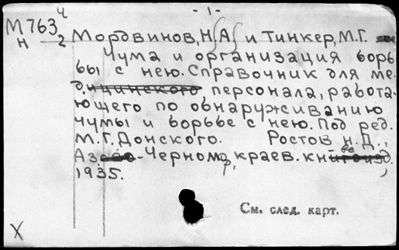 - 1 -
М763 ч
Н-2
Мордвинов, Н А и Тинкер, М.Г.
Чума и организация борь
бы с нею. Справочник для ме-
дицинского персонала, работа-
ющего по обнаруживанию
чумы и борьбе с нею. Под ред.
М.Г. Донского. Ростов н.Д.,
Аз -Черномр, краев.
1935.
См. след. карт.
X